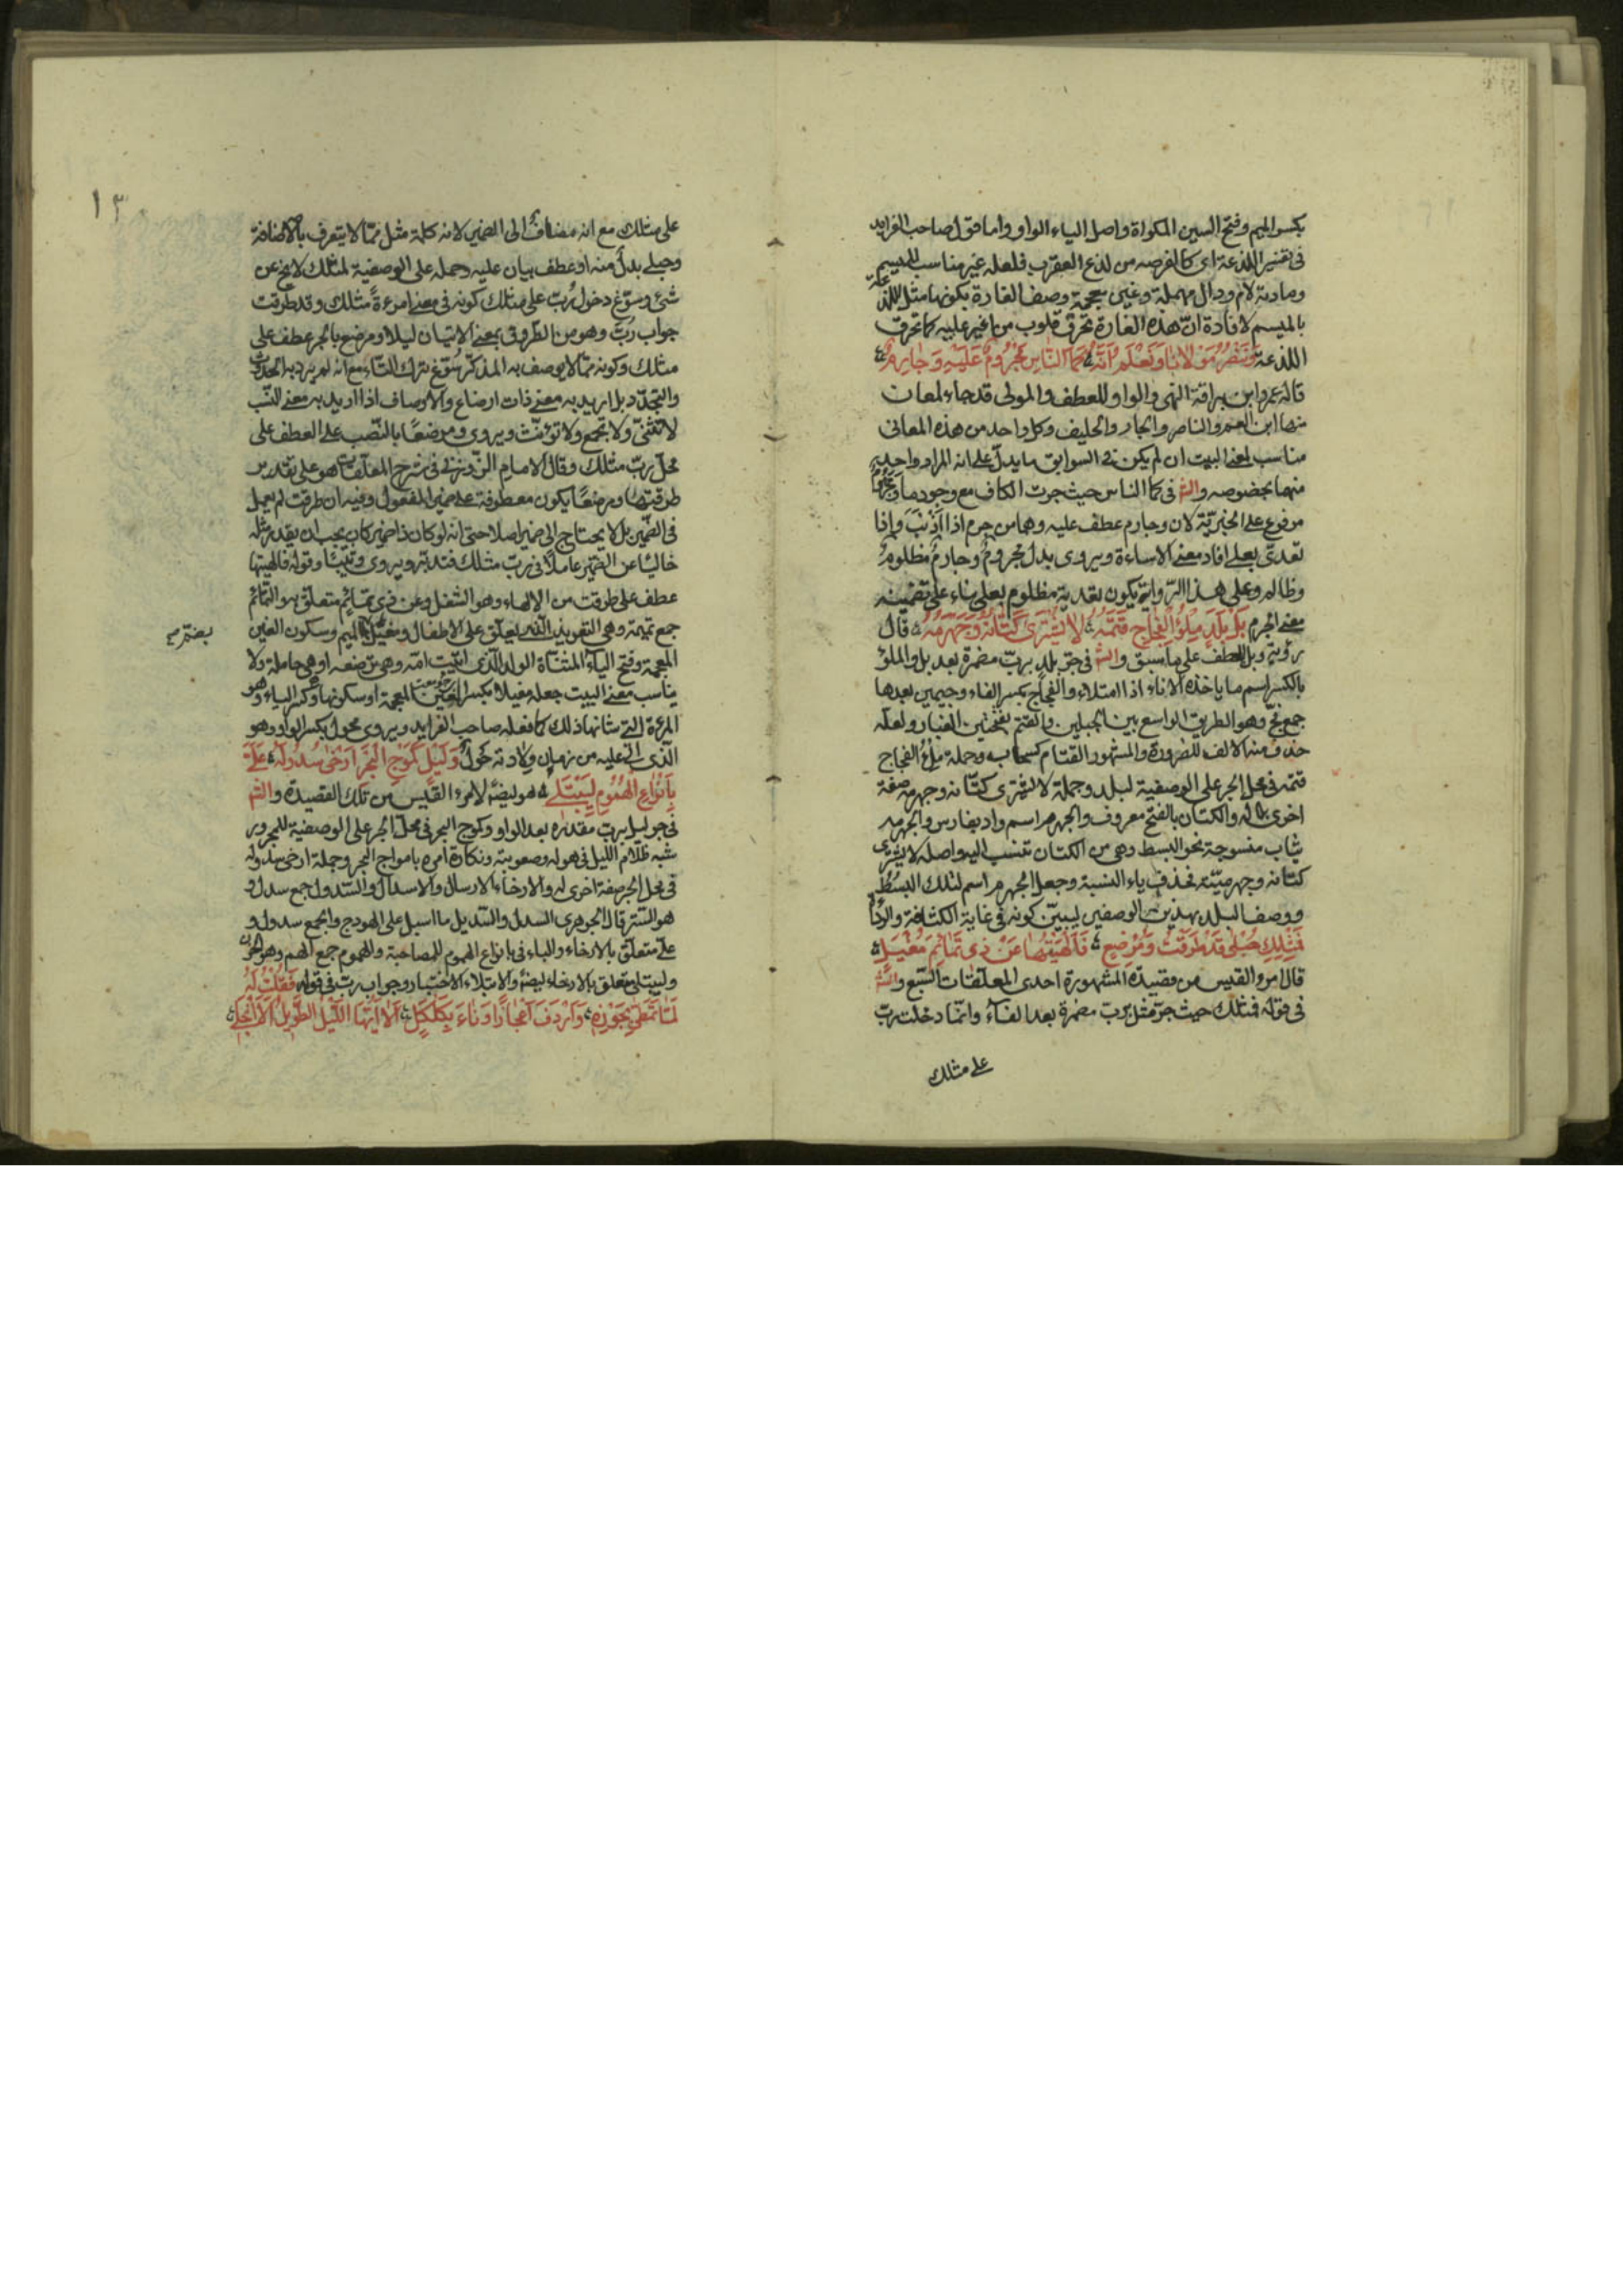 بكسر الميم وفتح السين المكواة واصل الياء الواو واما قول صاحب الفرايد
فى تفسير اللذعة اى كالقرصه من لدغ العقرب فلعله غير مناسب للميسم
ومادته لام ودال مهملة وغين معجمة ووصف الغارة بكونها مثل اللذعة
بالميسم لافادة انّ هذه الغارة تحرق قلوب من اغير عليه كما تحرق
اللذعة وَنَنْصُرُ مَوْلَانَا وَنَعْلَمُ اَنَّهُ كَمَا النَّاسِ مَجْرُومٌ عَلَيْهِ وَجَارِمُ
قاله عمرو ابن براقة النهمى والواو للعطف والمولى قد جاء لمعان
منها ابن العم والناصر والجار والحليف وكل واحد من هذه المعانى
مناسب لمعنى البيت ان لم يكن فى السوابق ما يدلّ على انه المراد واحد
منها بخصوصه والش فى كما الناس حيث جرت الكاف مع وجود ما ومجروم
مرفوع على الخبريّة لان وجارم عطف عليه وهما من جرم اذا اَذْنَبَ واذا
تعدّى بعلى افاد معنى الاساءة ويروى بدل مجروم وجارم مظلوم
وظالم وعلى هذا الرواية يكون تعدية مظلوم بعلى بناء على تضمينه
معنى الجرم بَلْ بَلَدٍ مِلْؤُ الْفِجَاجِ قَتَمُهُ لَا يُشْتَرَى كَتَّانُهُ وَجَهْرَمُهُ قال
رؤبة وبل للعطف على ما سبق والش فى جر بلد بربّ مضمرة بعد بل والملؤ
بالكسر اسم ما ياخذه الاناء اذا امتلاء والفجاج بكسر الفاء وجيمين بعدها
جمع فجّ وهو الطريق الواسع بين الجبلين والقتم بفتحتين الغبار ولعله
حذف منه الالف للضرورة والمشهور القتام كسحاب وجملة ملؤ الفجاج
قتمه فى محل الجر على الوصفية لبلد وجملة لا يشترى كتّانه وجهرمه صفة
اخرى له والكتان بالفتح معروف والجهرم اسم واد بفارس والجهرميه
ثياب منسوجة نحو البسط وهى من الكتان تنسب اليه واصله لا يشترى
كتانه وجهرميّته فحذف ياء النسبة وجعل الجهرم اسم لتلك البسُط
ووصف البلد بهذين الوصفين ليبيّن كونه فى غاية الكثافة
فَمِثْلِكِ حُبْلَى قَدْ طَرَقْتُ وَمُرْضِعٍ فَاَلْهَيْتُهَا عَنْ ذِى تَمَائِمَ مُغْيَلِ
قال امرؤ القيس من قصيدته المشهورة احدى المعلّقات السّبع والش
فى قوله فمثلك حيث جرّ مثل بربّ مضمرة بعد الفاء وانّما دخلت ربّ
على مثلك
١٣
على مثلك مع انه مضاف الى الضمير لانه كلمة مثل ممّا لا يتعرف بالاضافة
وحبلى بدل منه او عطف بيان عليه وحمله على الوصفية لمثلك لا يخ عن
شئ وسوّغ دخول رُبّ على مثلك كونه فى معنى امرءة مثلك وقد طرقت
جواب رُبّ وهو من الطروق بمعنى الاتيان ليلا ومرضع بالجر عطف على
مثلك وكونه ممّا لا يوصف به المذكّر سُوّغ بترك التّاء مع انه لم يرد به الحدوث
والتجدّد بل اريد به معنى ذات ارضاع والاوصاف اذا اريد به معنى النسب
لا تثنّى ولا تجمع ولا تؤنّث ويروى ومرضعًا بالنّصب على العطف على
محلّ ربّ مثلك وقال الامام الزّوزنى فى شرح المعلّقات هو على تقدير
طرقتها ومرضعًا يكون معطوفة على ضمير المفعول وفيه ان طرقت لم يعمل
فى الضّمير بل لا يحتاج الى ضمير اصلا حتى انه لو كان ذا ضمير كان يجب ان يقدر مثله
خاليًا عن الضمير عاملًا فى ربّ مثلك فتدبّر ويروى وثيّبًا وقوله فالهيتها
عطف على طرقت من الالهاء وهو الشغل وعن ذى تمائم متعلّق به والتمائم
جمع تميمة وهى التعويذ الّذى يعلّق على الاطفال ومغيل بضم الميم وسكون الغين
المعجمة وفتح الياء المثنّاة الولد الّذى اتيت امّه وهى ترضعه او هى حاملة ولا
يناسب معنى البيت جعله مغيلا بكسر الغين المعجمة او سكونها وكسر الياء وهو
المرءة التى شانها ذلك كما فعله صاحب الفرايد ويروى محول بكسر الواو وهو
الذى اتى عليه من زمان ولادته حَولٌ وَلَيْلٍ كَمَوْجِ الْبَحْرِ اَرْخَى سُدُولَهُ عَلَىَّ
بِاَنْوَاعِ الْهُمُومِ لِيَبْتَلِى هو ايضًا لامرء القيس من تلك القصيدة والش
فى جر ليل بربّ مقدّرة بعد الواو وكموج البحر فى محلّ الجر على الوصفية للمجرور
شبه ظلام اللّيل فى هوله وصعوبته ونكارة امره بامواج البحر وجملة ارخى سدوله
فى محل الجر صفة اخرى له والارخاء الارسال والاسدال والسّدول جمع سدل و
هو السّتر قال الجوهرى السدل والسّديل ما اسبل على الهودج والجمع سدول و
علىّ متعلّق بالارخاء والباء فى بانواع الهموم للمصاحبة والهموم جمع الهم وهو الحزن
وليبتلى متعلق بالارخاء ايضًا والابتلاء الاختبار وجواب ربّ فى قوله فَقُلْتُ لَهُ
لَمَّا تَمَطَّى بِجَوْزِهِ وَاَرْدَفَ اَعْجَازًا وَنَاءَ بِكَلْكَلِ اَلَا اَيُّهَا اللَّيْلُ الطَّوِيلُ اَلَا انْجَلِى